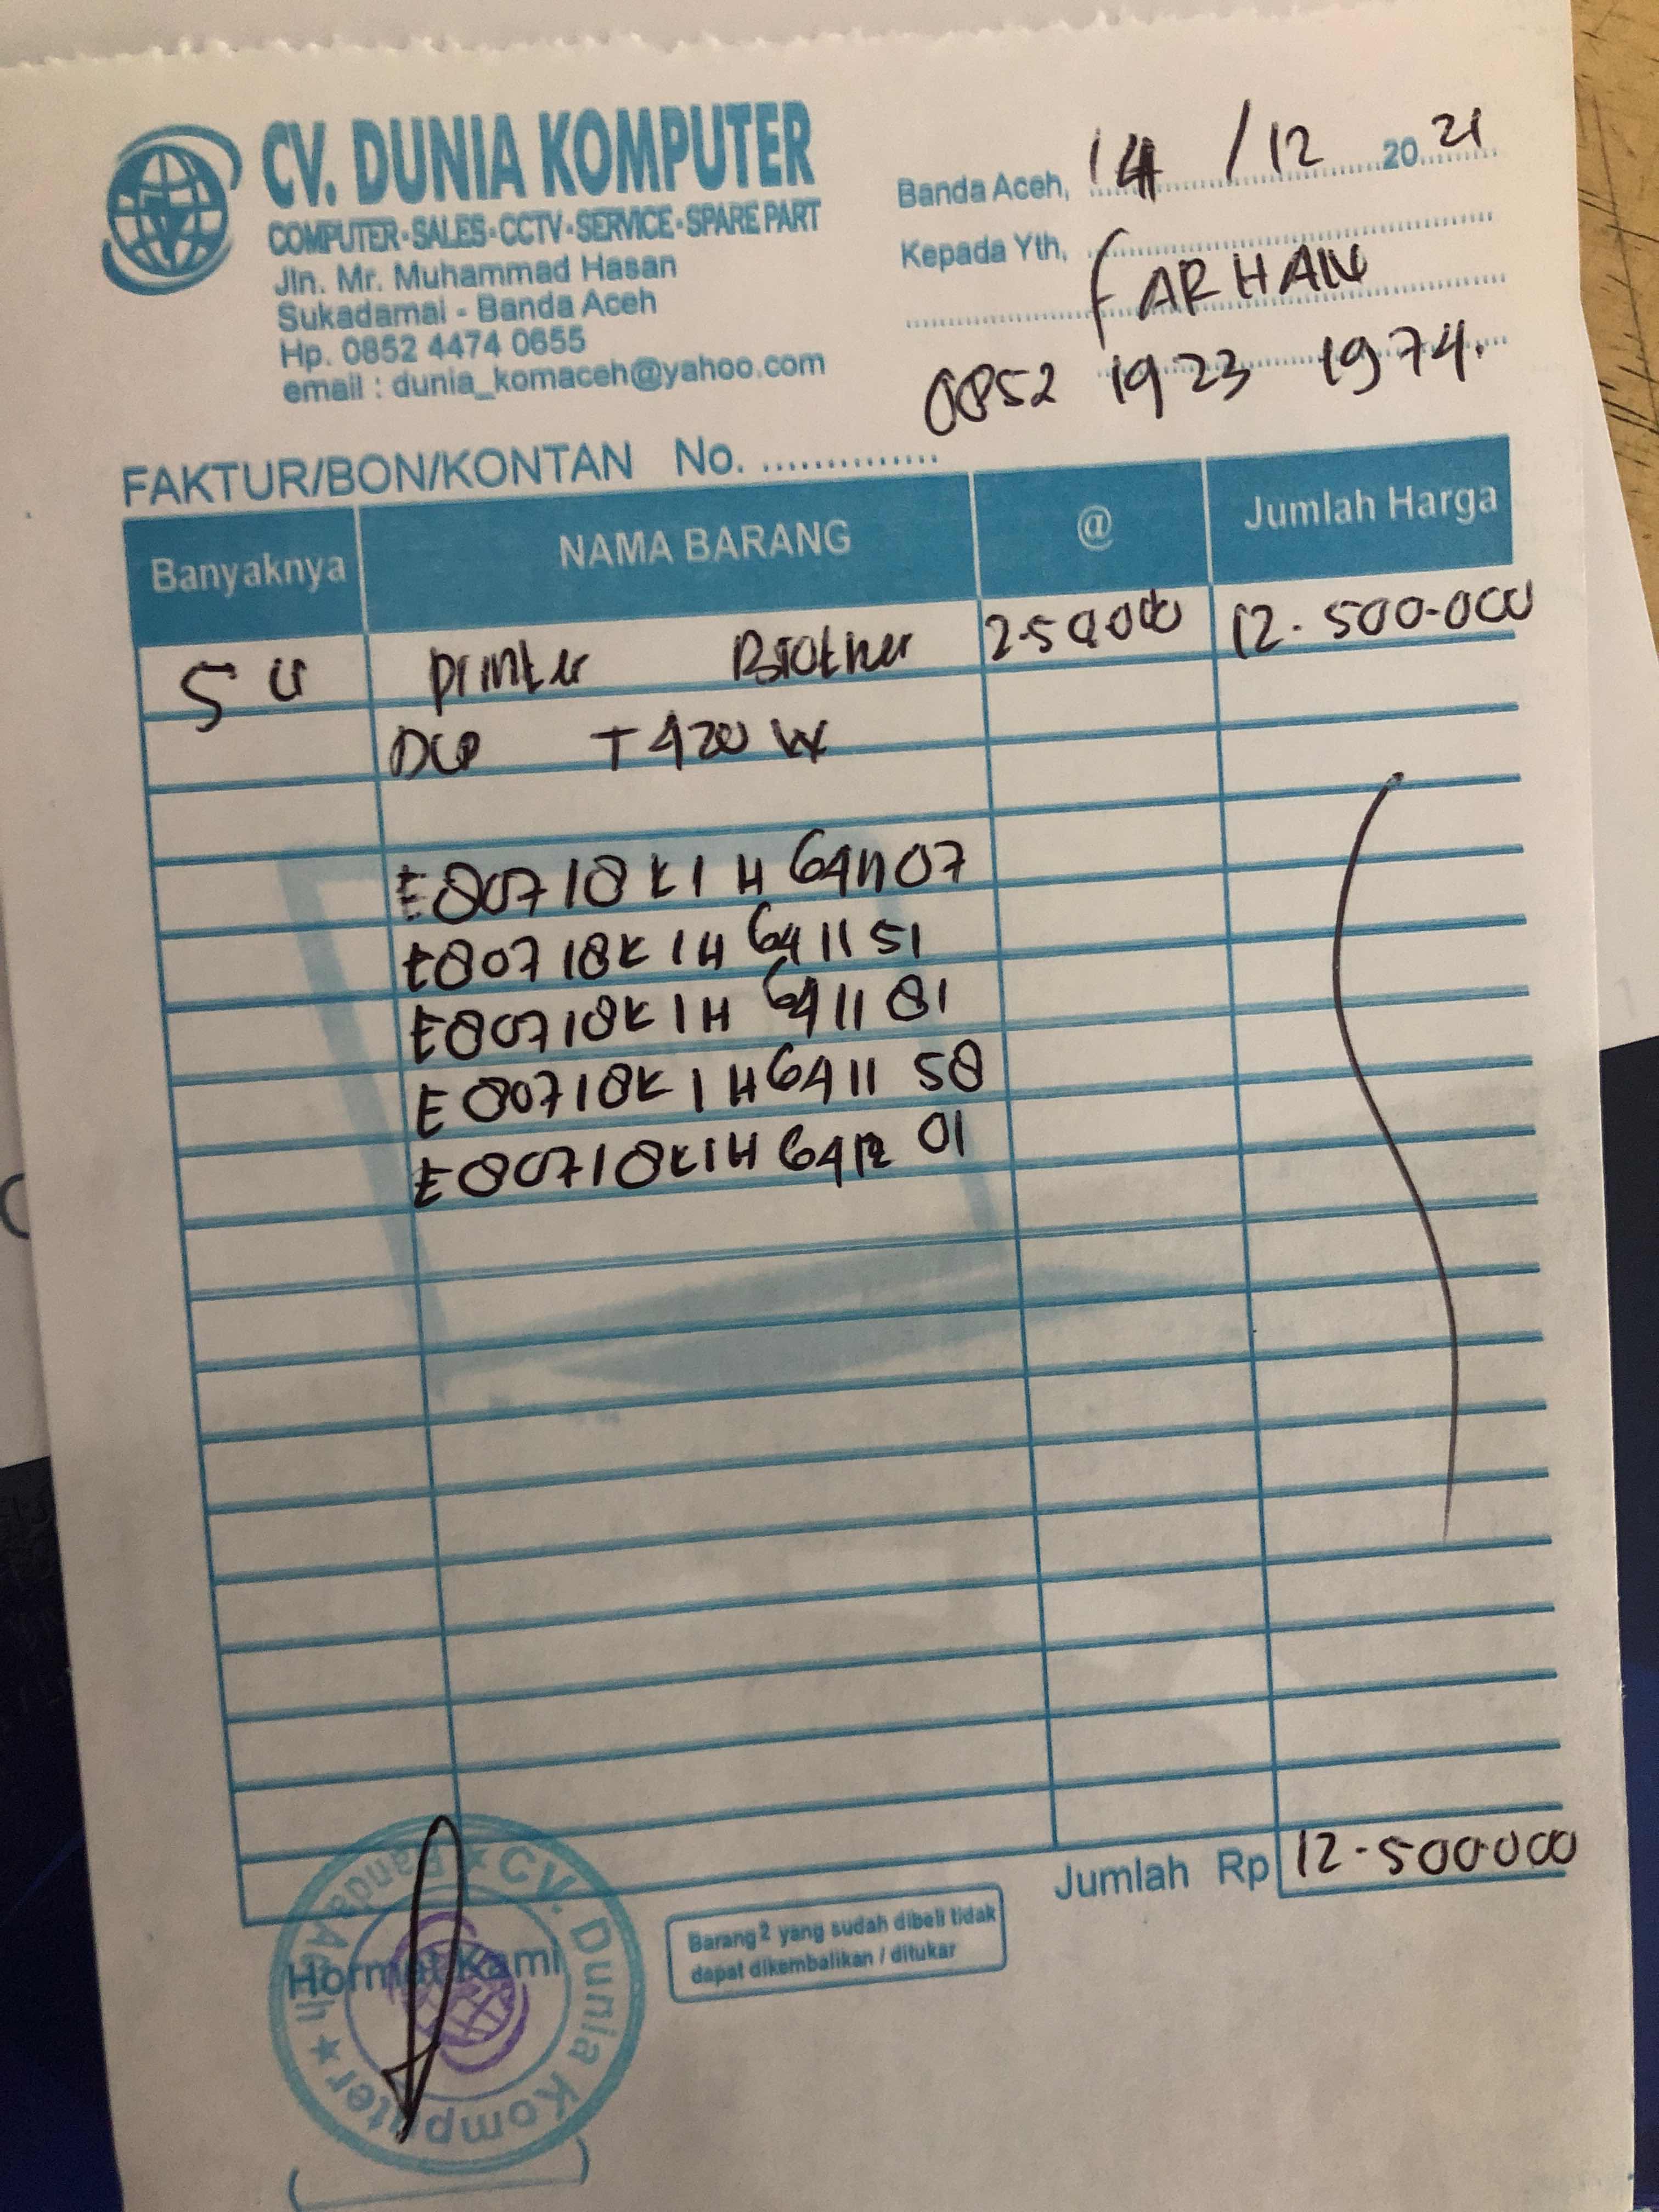 CV. DUNIA KOMPUTER
COMPUTER-SALES-CCTV-SERVICE-SPARE PART
Jln. Mr. Muhammad Hasan
Sukadamai - Banda Aceh
Hp. 0852 4474 0655
email : dunia_komaceh@yahoo.com
Banda Aceh, 14 / 12 20 21
Kepada Yth,
FARHAN
0852 1923 1974.
FAKTUR/BON/KONTAN No. ..............
Banyaknya NAMA BARANG @ Jumlah Harga
5 U Printer Brother 2.50.000 12.500.000
DCP T420 W
E80718K1H641107
E80718K1H641151
E80718K1H641181
E80718K1H641158
E80718K1H641201
Jumlah Rp 12.500000
Barang2 yang sudah dibeli tidak
dapat dikembalikan / ditukar
Hormat Kami
CV. Dunia Komputer ★ Banda Aceh ★